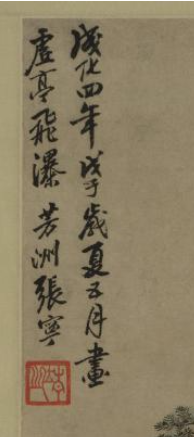 成化四年戊子歲夏五月畫
虛亭飛瀑 芳洲張寧